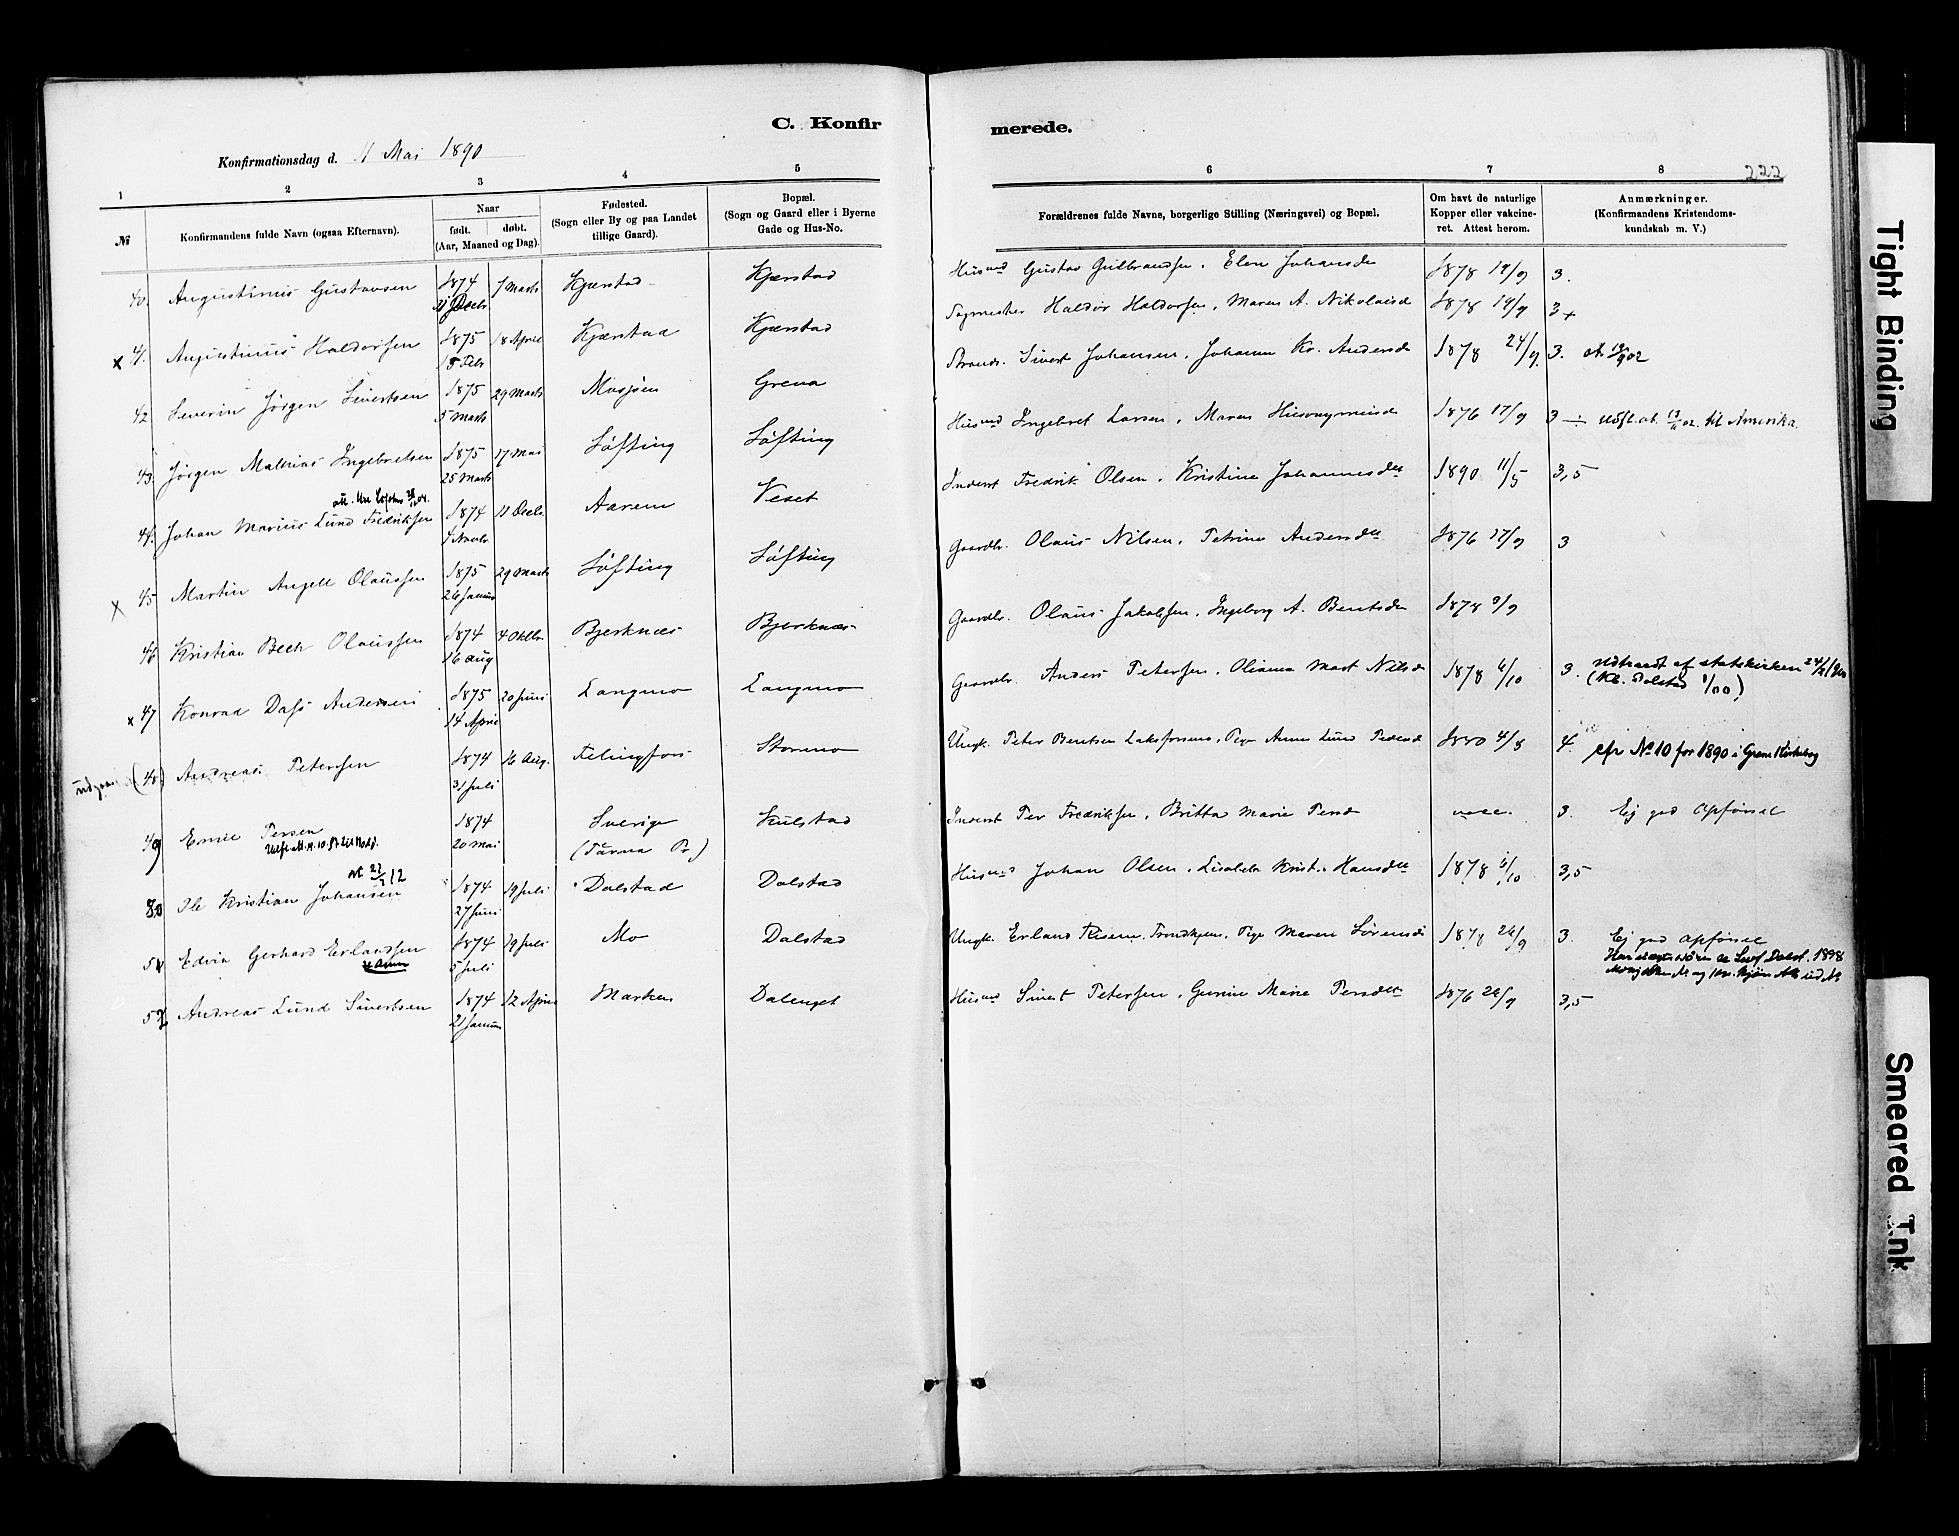 C. Konfirmerede.
Konfirmationsdag d. 11 Mai 1890
222
1 2 3 4 5 6 7 8
№
Konfirmandens fulde Navn (ogsaa Efternavn).
Naar
født. døbt.
(Aar, Maaned og Dag).
Fødested.
(Sogn eller By og paa Landet
tillige Gaard).
Bopæl.
(Sogn og Gaard eller i Byerne
Gade og Hus-No.
Forældrenes fulde Navne, borgerlige Stilling (Næringsvei) og Bopæl.
Om havt de naturlige
Kopper eller vakcine-
ret. Attest herom.
Anmærkninger.
(Konfirmandens Kristendoms-
kundskab m. V.)
40. Augustinus Gustavsen 1874 7 Marts Kjærstad Kjærstad Husmd Gustav Guldbrandsen, Elen Johansd 1878 19/9 3.
x 41. Augustinus Haldorsen 1875 18 April Kjærstad Kjærstad Sagmester Haldor Haldorsen, Maren A. Nikolaisd 1878 19/9 3+
18 Feb
42 Severin Jørgen Sivertsen 1875 29 Marts Mosjøen Grena Strands. Sivert Johansen, Johanna Kr. Andersd 1878 24/9 3.
5 Marts
43. Jørgen Mathias Ingebretsen 1875 17 Mai Løfting Løfting Husmd Ingebret Larsen, Maren 1876 17/9 3 ÷ til Amerika.
25 Marts
44. Johan Marius Lund Fredriksen 1874 11 Decbr Aarem Veset Inderst Fredrik Olsen, Kristine Johannesdtt 1890 11/5 3,5
x 45 Martin Angell Olaussen 1875 29 Marts Løfting Løfting Gaardbr. Olaus Nilsen, Petrine Andersdtt 1876 17/9 3
26 Januar
46 Kristian Bech Olaussen 1874 4 Oktbr Bjerknæs Bjerknæs Gaardbr. Olaus Jakobsen, Ingeborg A. Bentsd 1878 9/9
16 Aug
x 47 Konrad Dass Andersen 1875 20 Juni Langmo Langmo Gaardbr. Anders Petersen, Oliana Mart Nilsd 1878 6/10 3. Udtraadt af statskirken
(Kb. Dolstad 1/00)
14 April
(48) Andreas Petersen 1874 16 Aug. Stormo Ungk. Peter Bentsen Laksforsmo, Pige Anne Lund Pedersd 1880 4/8 4. cfr No 10 for 1890 i Grane Kirkebog
31 Juli
49 Emil Persen 1874 Sverige Kulstad Inderst Per Fredriksen, Britta Marie Persd 3. Ej god Opførsel
20 Mai (Tärna Pr.)
50 Ole Kristian Johansen 1874 19 Juli Dolstad Dolstad Husmd Johan Olsen, Lisabeta Krist. Hansdtt 1878 6/10 3,5
27 Juni
51 Edvin Gerhard Erlandsen 1874 19 Juli Mo Dolstad Ungk. Erland Trondhjem, Pige Maren Sørensd 1878 24/9 3. Ej god Opførsel
5 Juli
52 Andreas Lund Sivertsen 1874 12 April Marken Dalenget Husmd Sivert Petersen, Gurine Marie Persdtt 1876 24/9 3,5
21 Januar
Tight Binding
Smeared Ink